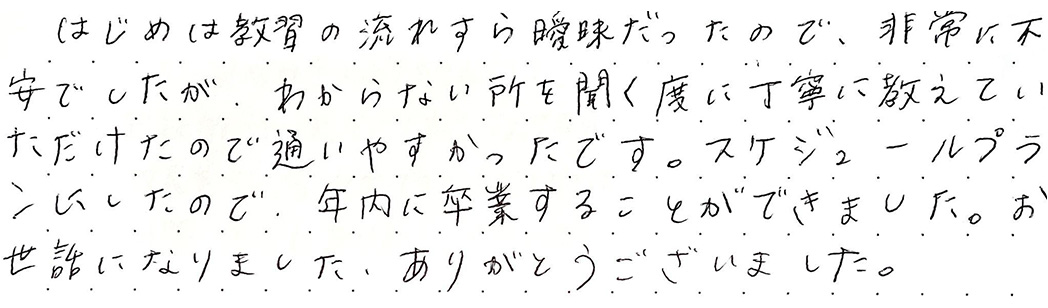 はじめは教習の流れすら曖昧だったので、非常に不
安でしたが、わからない所を聞く度に丁寧に教えてい
ただけたので通いやすかったです。スケジュールプラ
ンにしたので、年内に卒業することができました。お
世話になりました、ありがとうございました。